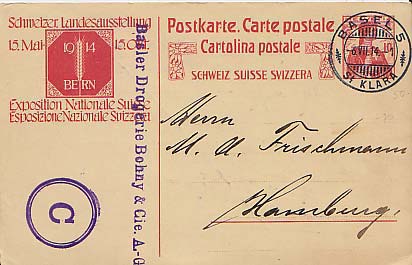 Schweizer Landesausstellung
15. Mai
1914
BERN
Exposition Nationale Suisse
Esposizione Nazionale Svizzera
Basler Drogerie Bohny & Cie. A.-G
C
Postkarte. Carte postale
Cartolina postale
SCHWEIZ SUISSE SVIZZERA
BASEL 5
ST. KLARA
10
Herrn
M. A. Frischmann
Hamburg.